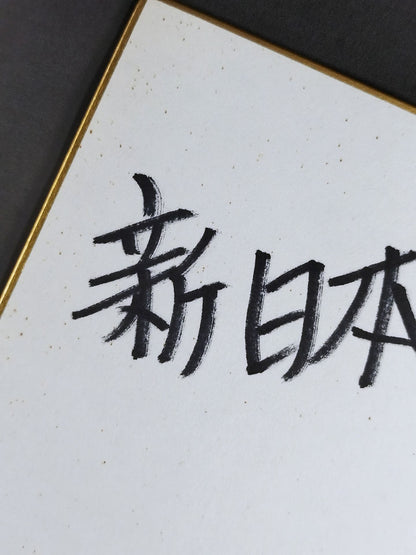 新日本